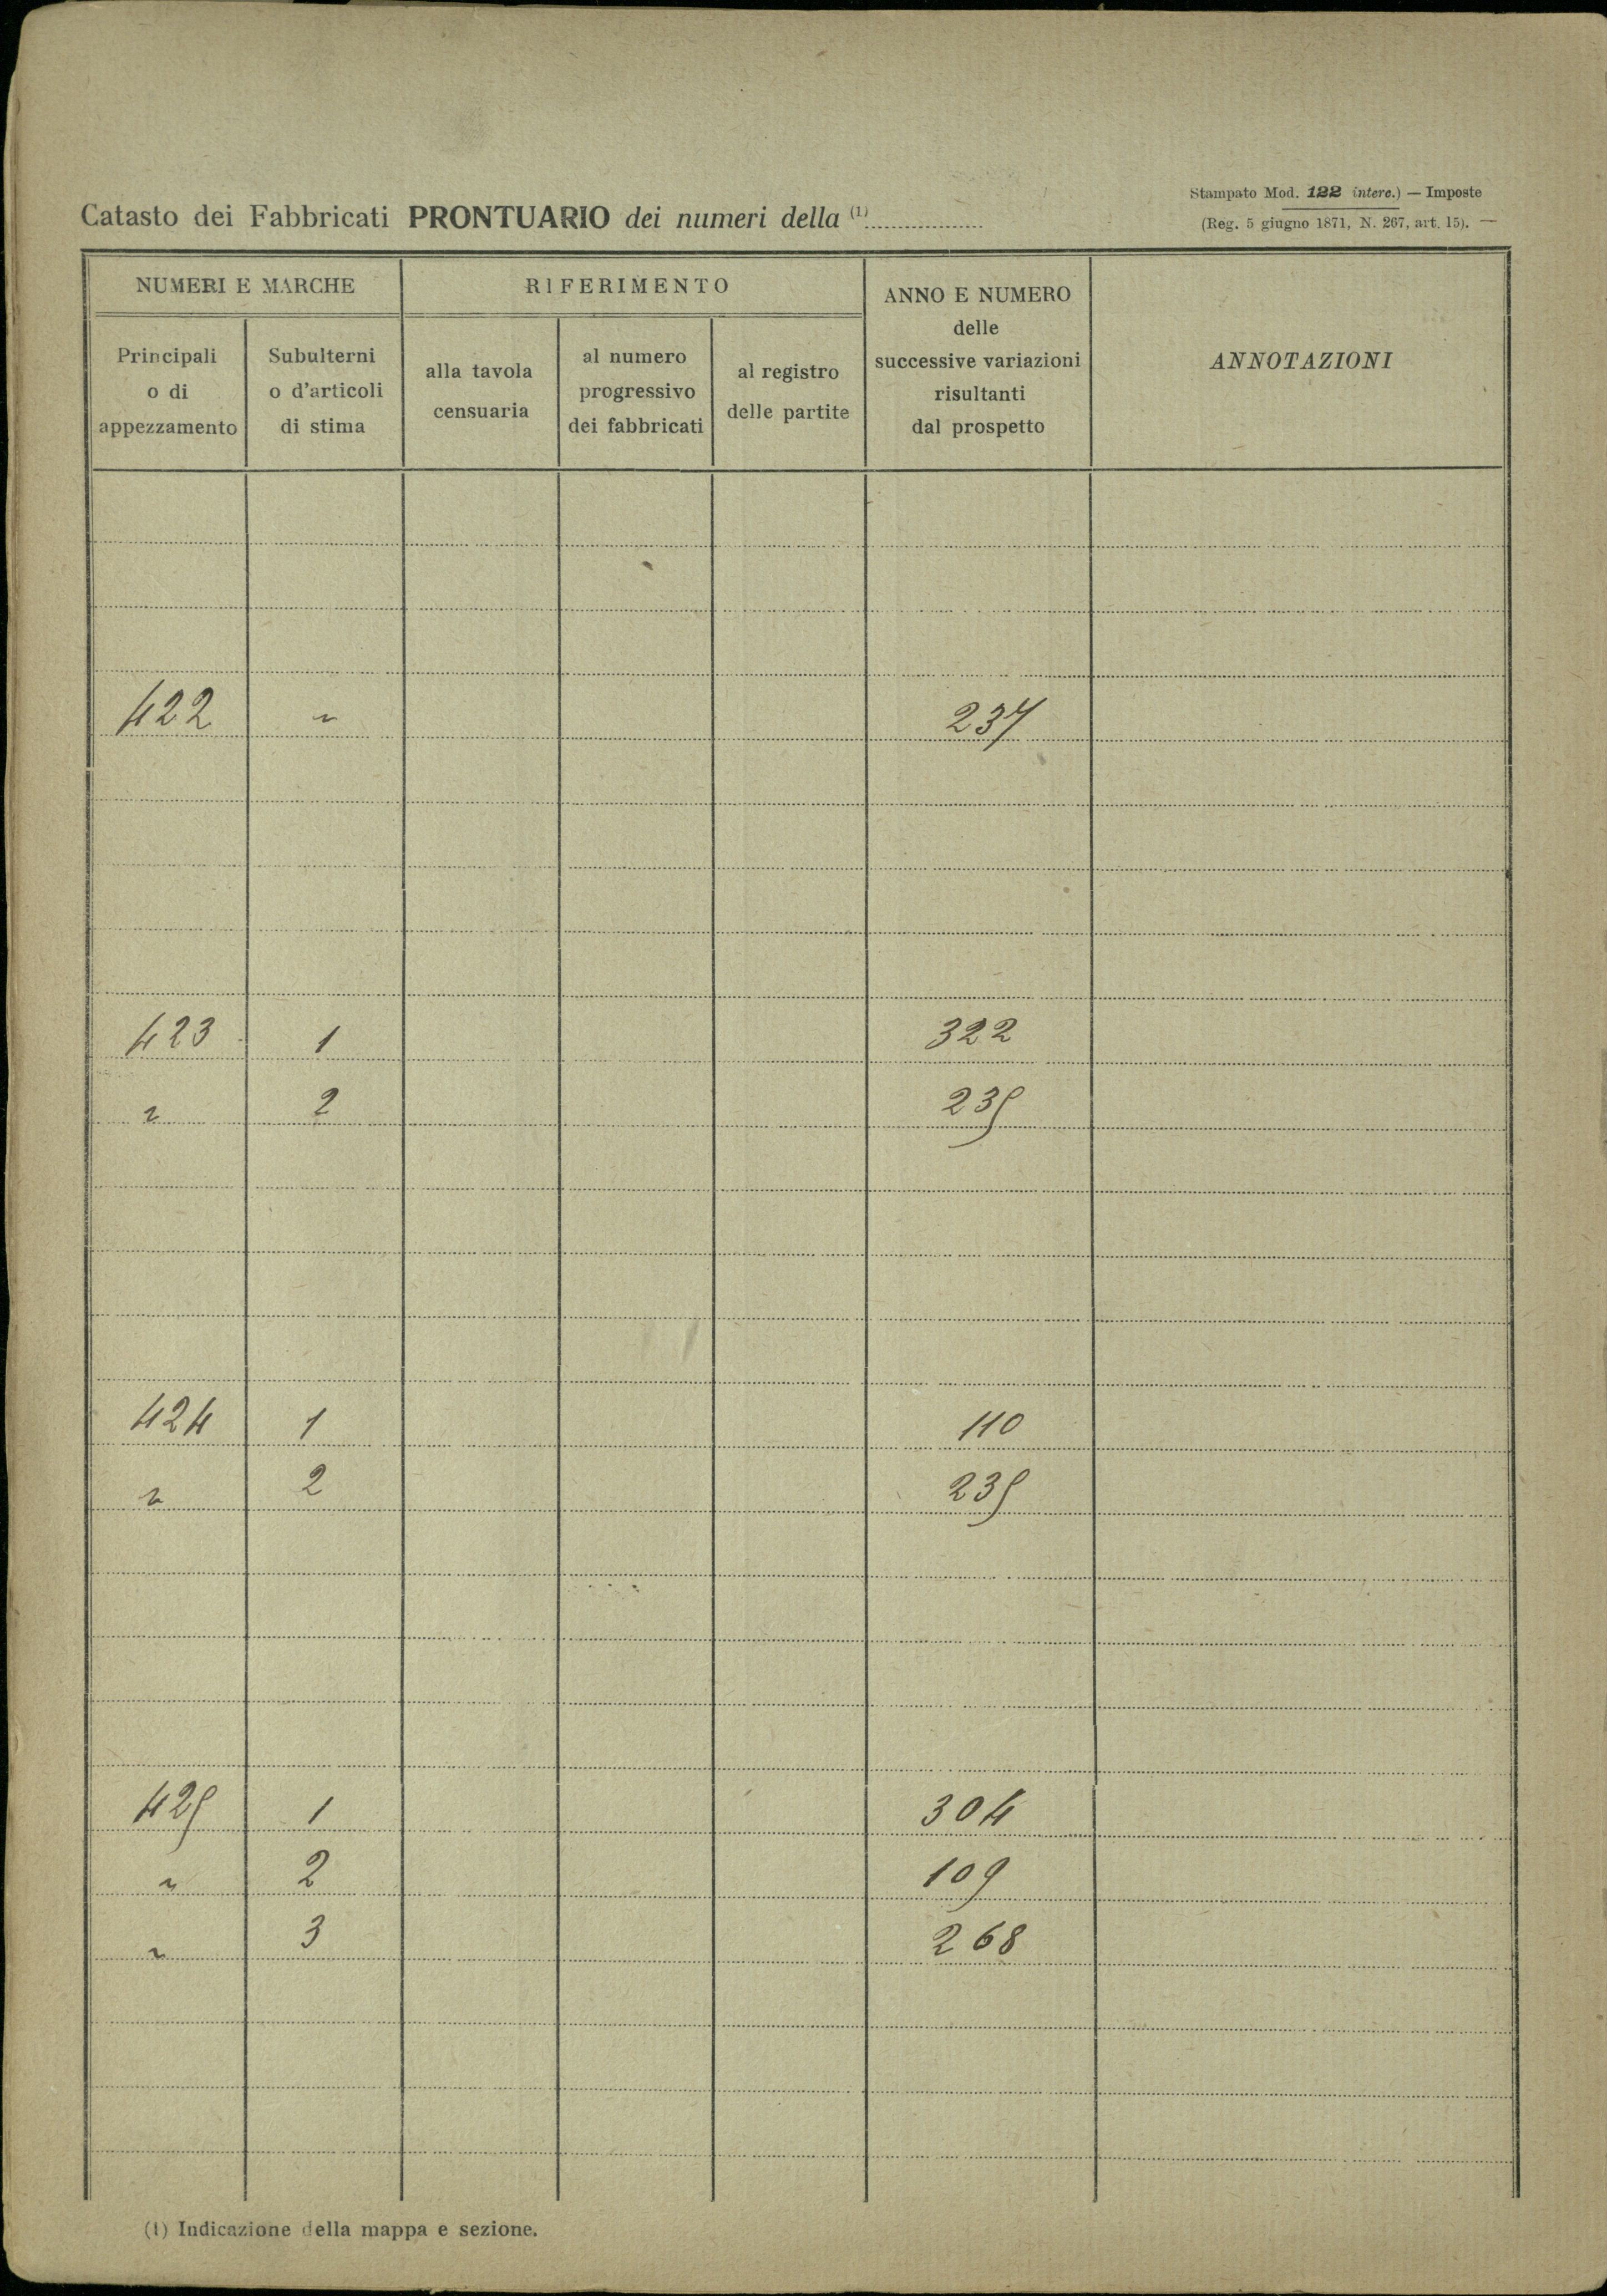 Stampato Mod. 122 interc.) — Imposte
(Reg. 5 giugno 1871, N. 267, art. 15). —
Catasto dei Fabbricati PRONTUARIO dei numeri della (1)
NUMERI E MARCHE
RIFERIMENTO
ANNO E NUMERO
delle
successive variazioni
risultanti
dal prospetto
ANNOTAZIONI
Principali
o di
appezzamento
Subulterni
o d'articoli
di stima
alla tavola
censuaria
al numero
progressivo
dei fabbricati
al registro
delle partite
422 " 237
423 1 322
" 2 235
424 1 110
" 2 235
425 1 304
" 2 109
" 3 268
(1) Indicazione della mappa e sezione.